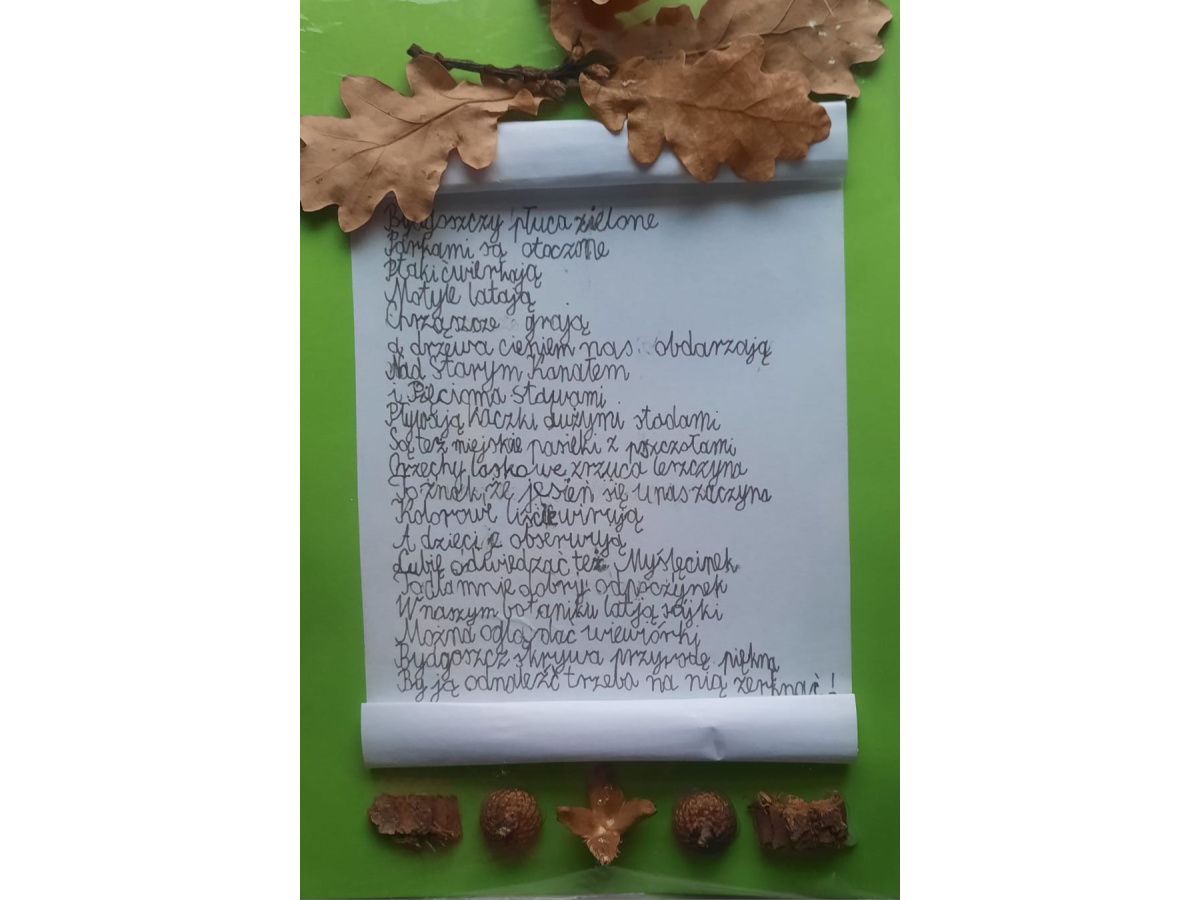 Bydgoszczy płuca zielone
Parkami są otoczone
Ptaki ćwierkają
Motyle latają
Chrząszcze grają
a drzewa cieniem nas obdarzają
Nad Starym Kanałem
i Pięcioma stawami
Pływają kaczki dużymi stadami
Są też miejskie pasieki z pszczołami
Orzechy laskowe zrzuca leszczyna
To znak, że jesień się u nas zaczyna
Kolorowe liście wirują
A dzieci je obserwują
Lubię odwiedzać też Myślęcinek
To dla mnie dobry odpoczynek
W naszym botaniku latją sójki
Można oglądać wiewiórki
Bydgoszcz skrywa przyrodę piękną
By ją odnaleźć trzeba na nią zerknąć!